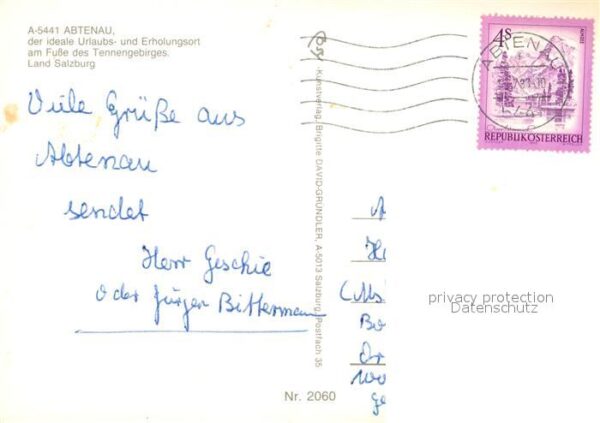 A-5441 ABTENAU,
der ideale Urlaubs- und Erholungsort
am Fuße des Tennengebirges.
Land Salzburg
Viele Grüße aus
Abtenau
sendet
Herr Geschie
oder Jürgen Bittermann
Kunstverlag, Brigitte DAVID-GRUNDLER, A-5013 Salzburg, Postfach 35
Nr. 2060
4S
ABTENAU
REPUBLIK ÖSTERREICH
privacy protection
Datenschutz